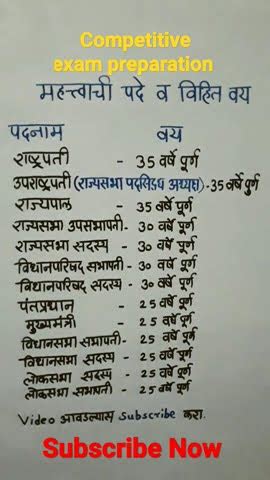 Competitive
exam preparation
महत्त्वाची पदे व विहित वय
पदनाम वय
राष्ट्रपती - 35 वर्षे पूर्ण
उपराष्ट्रपती (राज्यसभा पदसिद्ध अध्यक्ष) - 35 वर्षे पूर्ण
राज्यपाल - 35 वर्षे पूर्ण
राज्यसभा उपसभापती - 30 वर्षे पूर्ण
राज्यसभा सदस्य - 30 वर्षे पूर्ण
विधानपरिषद सभापती - 30 वर्षे पूर्ण
विधानपरिषद सदस्य - 30 वर्षे पूर्ण
पंतप्रधान - 25 वर्षे पूर्ण
मुख्यमंत्री - 25 वर्षे पूर्ण
विधानसभा सभापती - 25 वर्षे पूर्ण
विधानसभा सदस्य - 25 वर्षे पूर्ण
लोकसभा सदस्य - 25 वर्षे पूर्ण
लोकसभा सभापती - 25 वर्षे पूर्ण
Video आवडल्यास Subscribe करा.
Subscribe Now